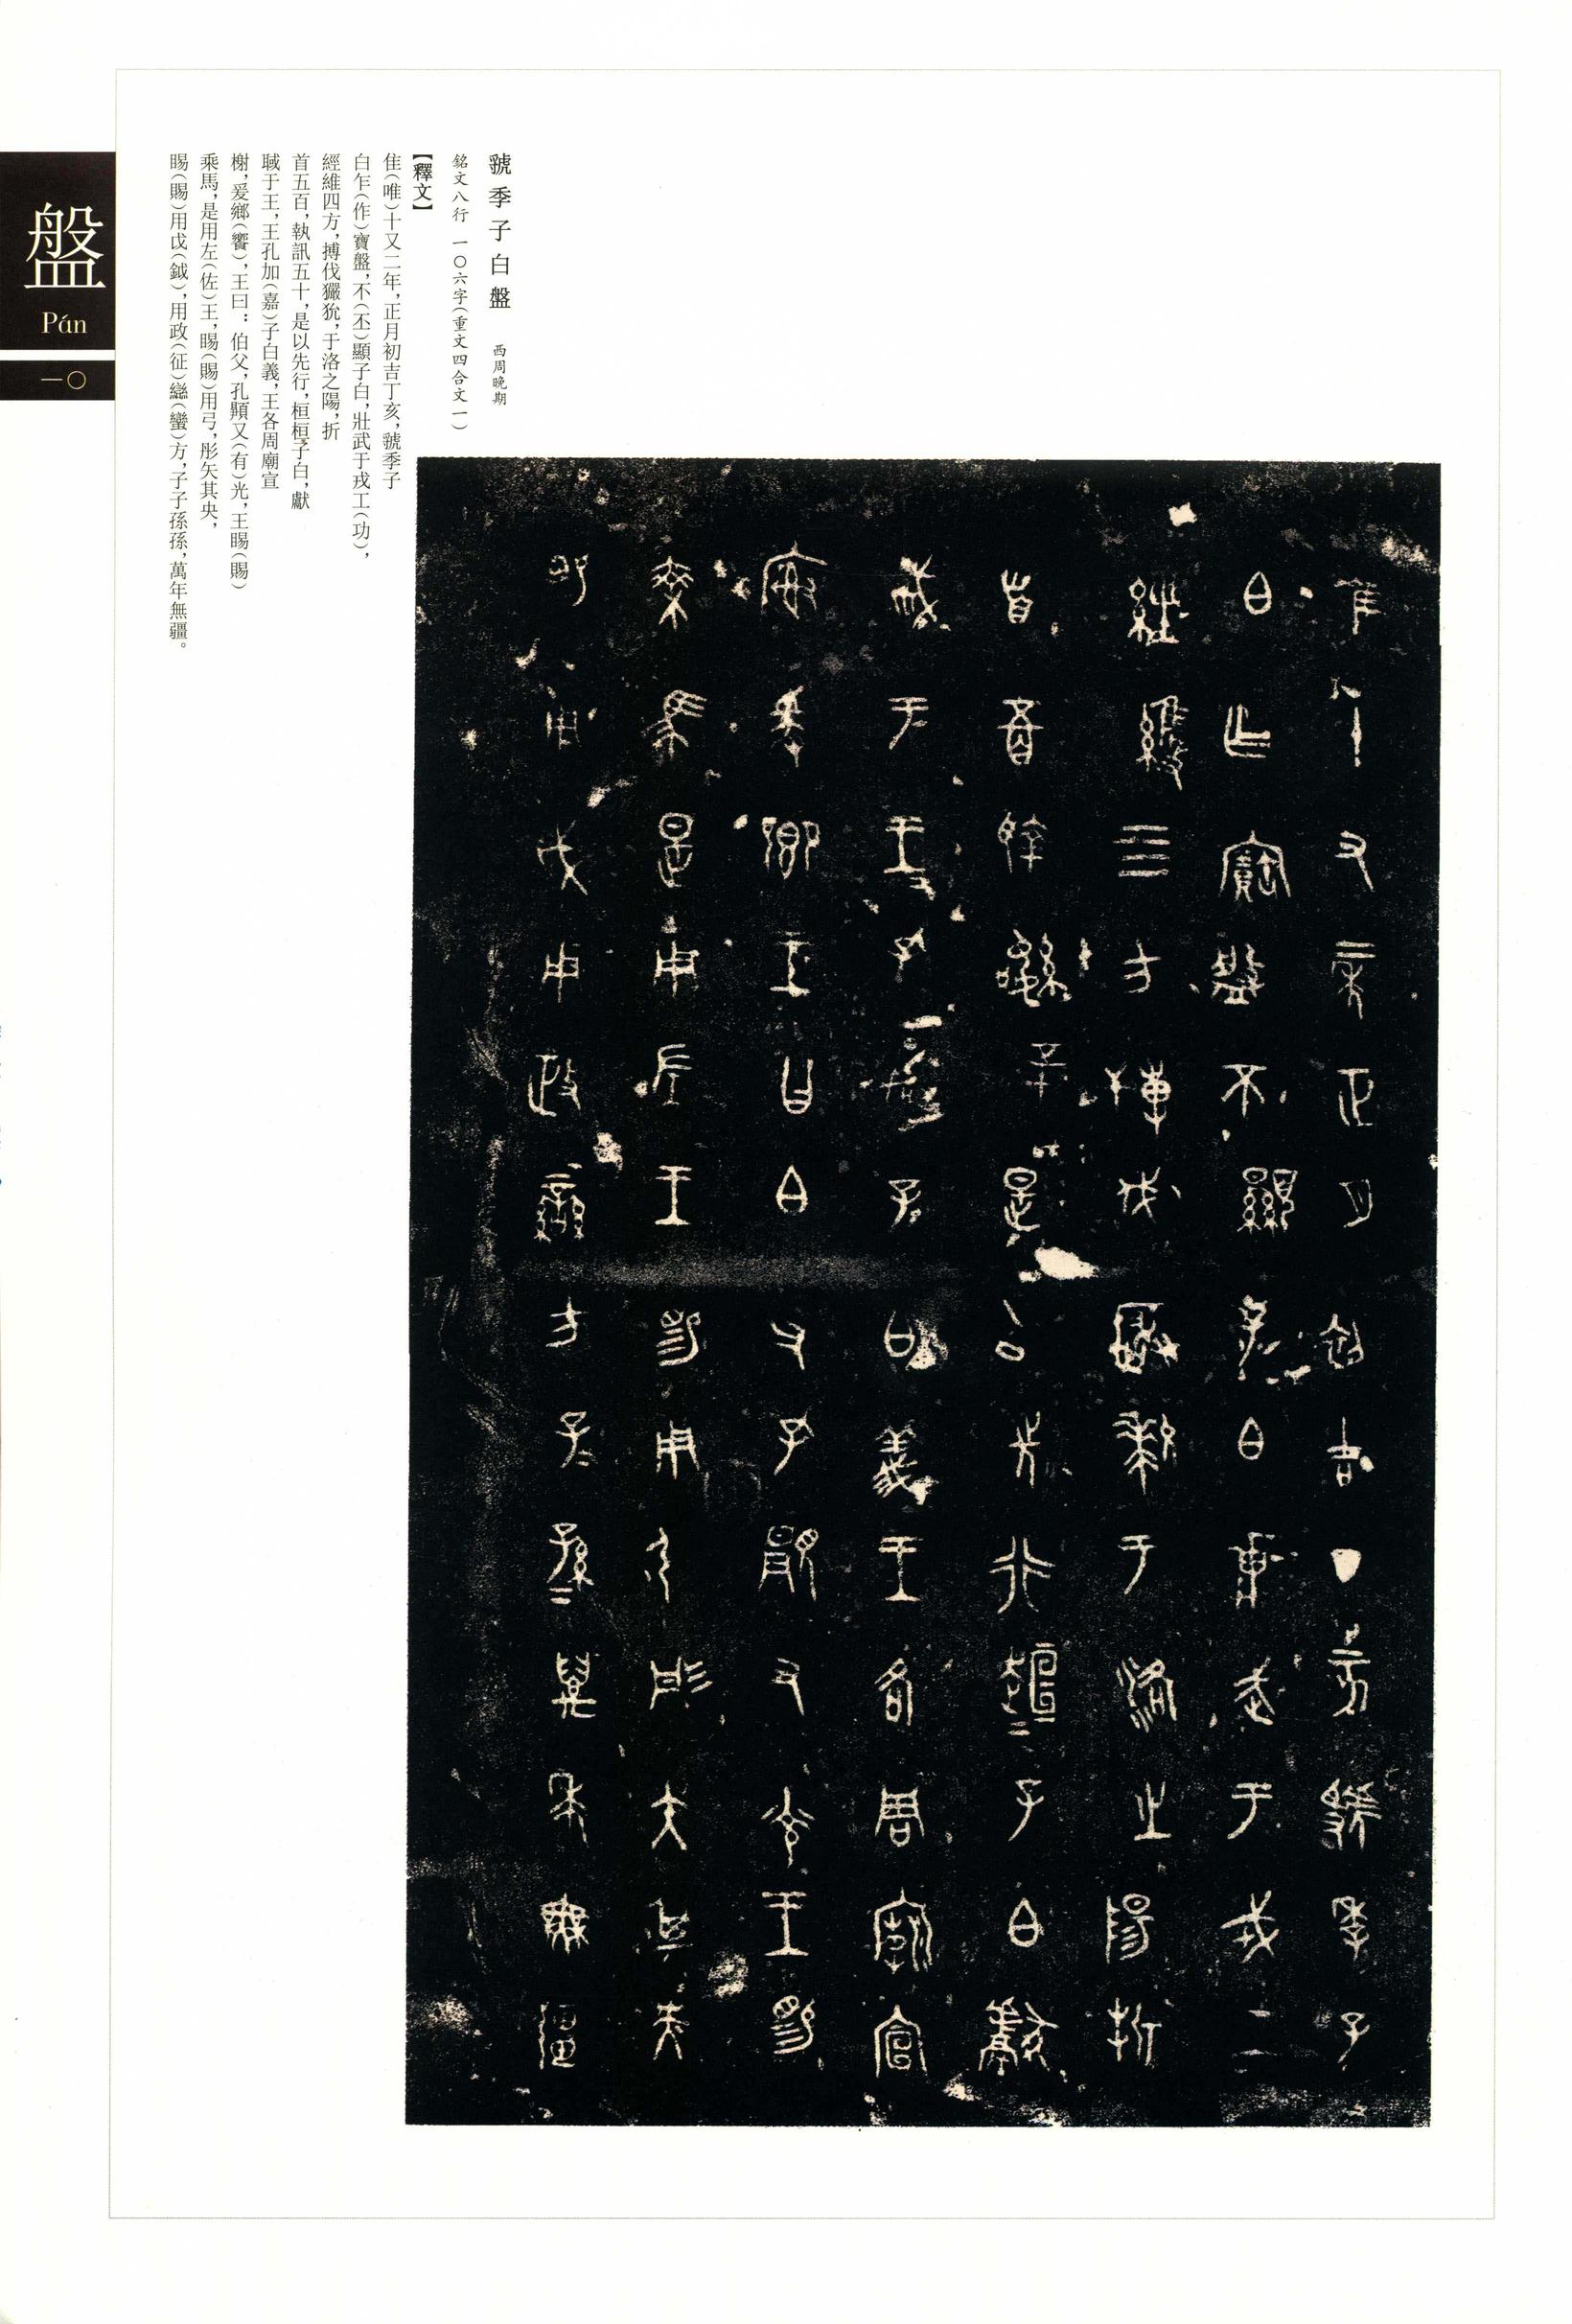 虢季子白盤 西周晚期
銘文八行 一〇六字(重文四合文一)
【釋文】
隹(唯)十又二年,正月初吉丁亥,虢季子
白乍(作)寶盤,不(丕)顯子白,壯武于戎工(功),
經維四方,搏伐玁狁,于洛之陽,折
首五百,執訊五十,是以先行,桓桓子白,獻
聝于王,王孔加(嘉)子白義,王各周廟宣
榭,爰鄉(饗),王曰:伯父,孔顯又(有)光,王賜(賜)
乘馬,是用左(佐)王,賜(賜)用弓,彤矢其央,
賜(賜)用戉(鉞),用政(征)蠻(蠻)方,子子孫孫,萬年無疆。
盤
Pán
一〇